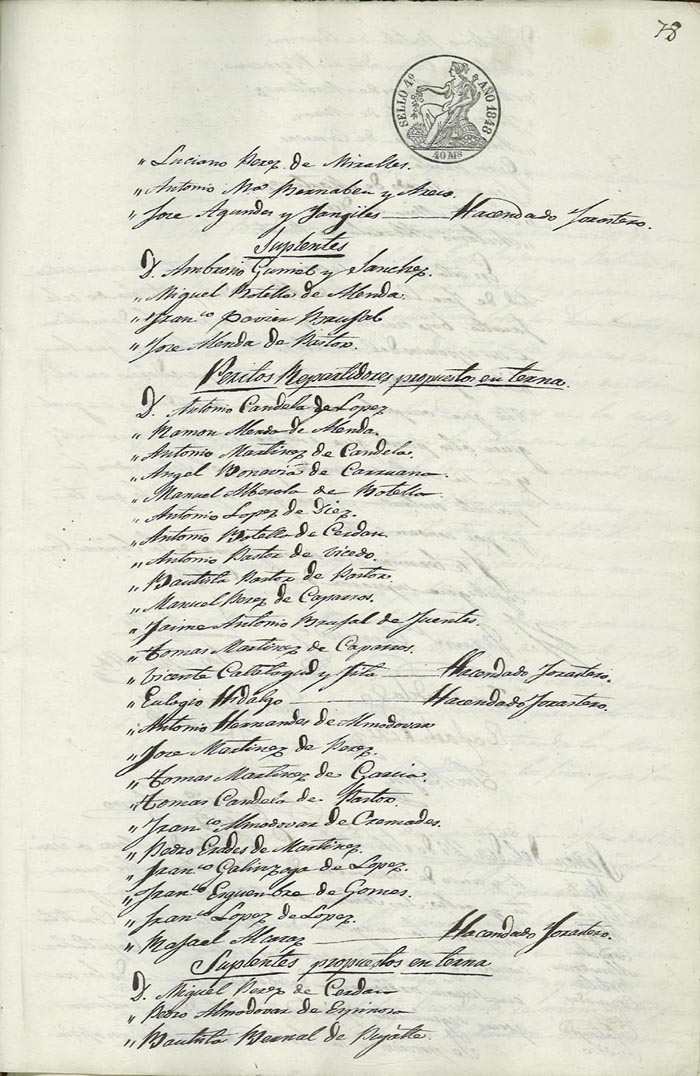 78
SELLO 4º AÑO 1848
40 Ms
" Luciano Perez de Miralles.
" Antonio Mª Bernabeu y
" Jose Agundes y Jangiles Hacendado Forastero.
Suplentes
D. Ambrosio Gumiel y Sanchez.
" Miguel Botella de Menda.
" Franco Xavier Brufal
" Jose Menda de Pastor.
Peritos Repartidores propuestos en terna.
D. Antonio Candela de Lopez
" Ramon Menda de Menda.
" Antonio Martinez de Candela.
" Angel Bonavia de Carruana.
" Manuel Alberola de Botella
" Antonio Lopez de Diez.
" Antonio Botella de Cerdan.
" Antonio Pastor de Vicedo.
" Bautista Pastor de Pastor.
" Manuel Perez de Caparros.
" Jaime Antonio Brufal de Fuentes.
" Tomas Martinez de Caparros.
" Vicente Calatayud y Hacendado Forastero.
" Eulogio Hidalgo Hacendado Forastero.
" Antonio Hernandes de Almodovar
" Jose Martinez de Perez.
" Tomas Martinez de Garcia.
" Tomas Candela de Pastor.
" Franco Almodovar de Cremades.
" Pedro Erades de Martinez.
" Franco Galinzoga de Lopez.
" Franco Erguembre de Gomes.
" Franco Lopez de Lopez.
" Rafael Alcaraz Hacendado Forastero.
Suplentes propuestos en terna
D. Miguel Perez de Cerdan
" Pedro Almodovar de Espinosa
" Bautista Bernal de